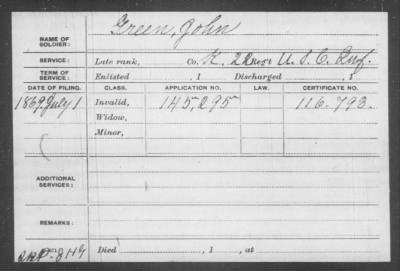 Green, John
NAME OF SOLDIER:
SERVICE: Late rank, Co. K, 22 Reg't U. S. C. Inf.
TERM OF SERVICE: Enlisted , 1 Discharged , 1
DATE OF FILING. CLASS. APPLICATION NO. LAW. CERTIFICATE NO.
1869, July 1 Invalid, 145,295 116.793.
Widow,
Minor,
ADDITIONAL SERVICES:
REMARKS:
Died , 1 , at